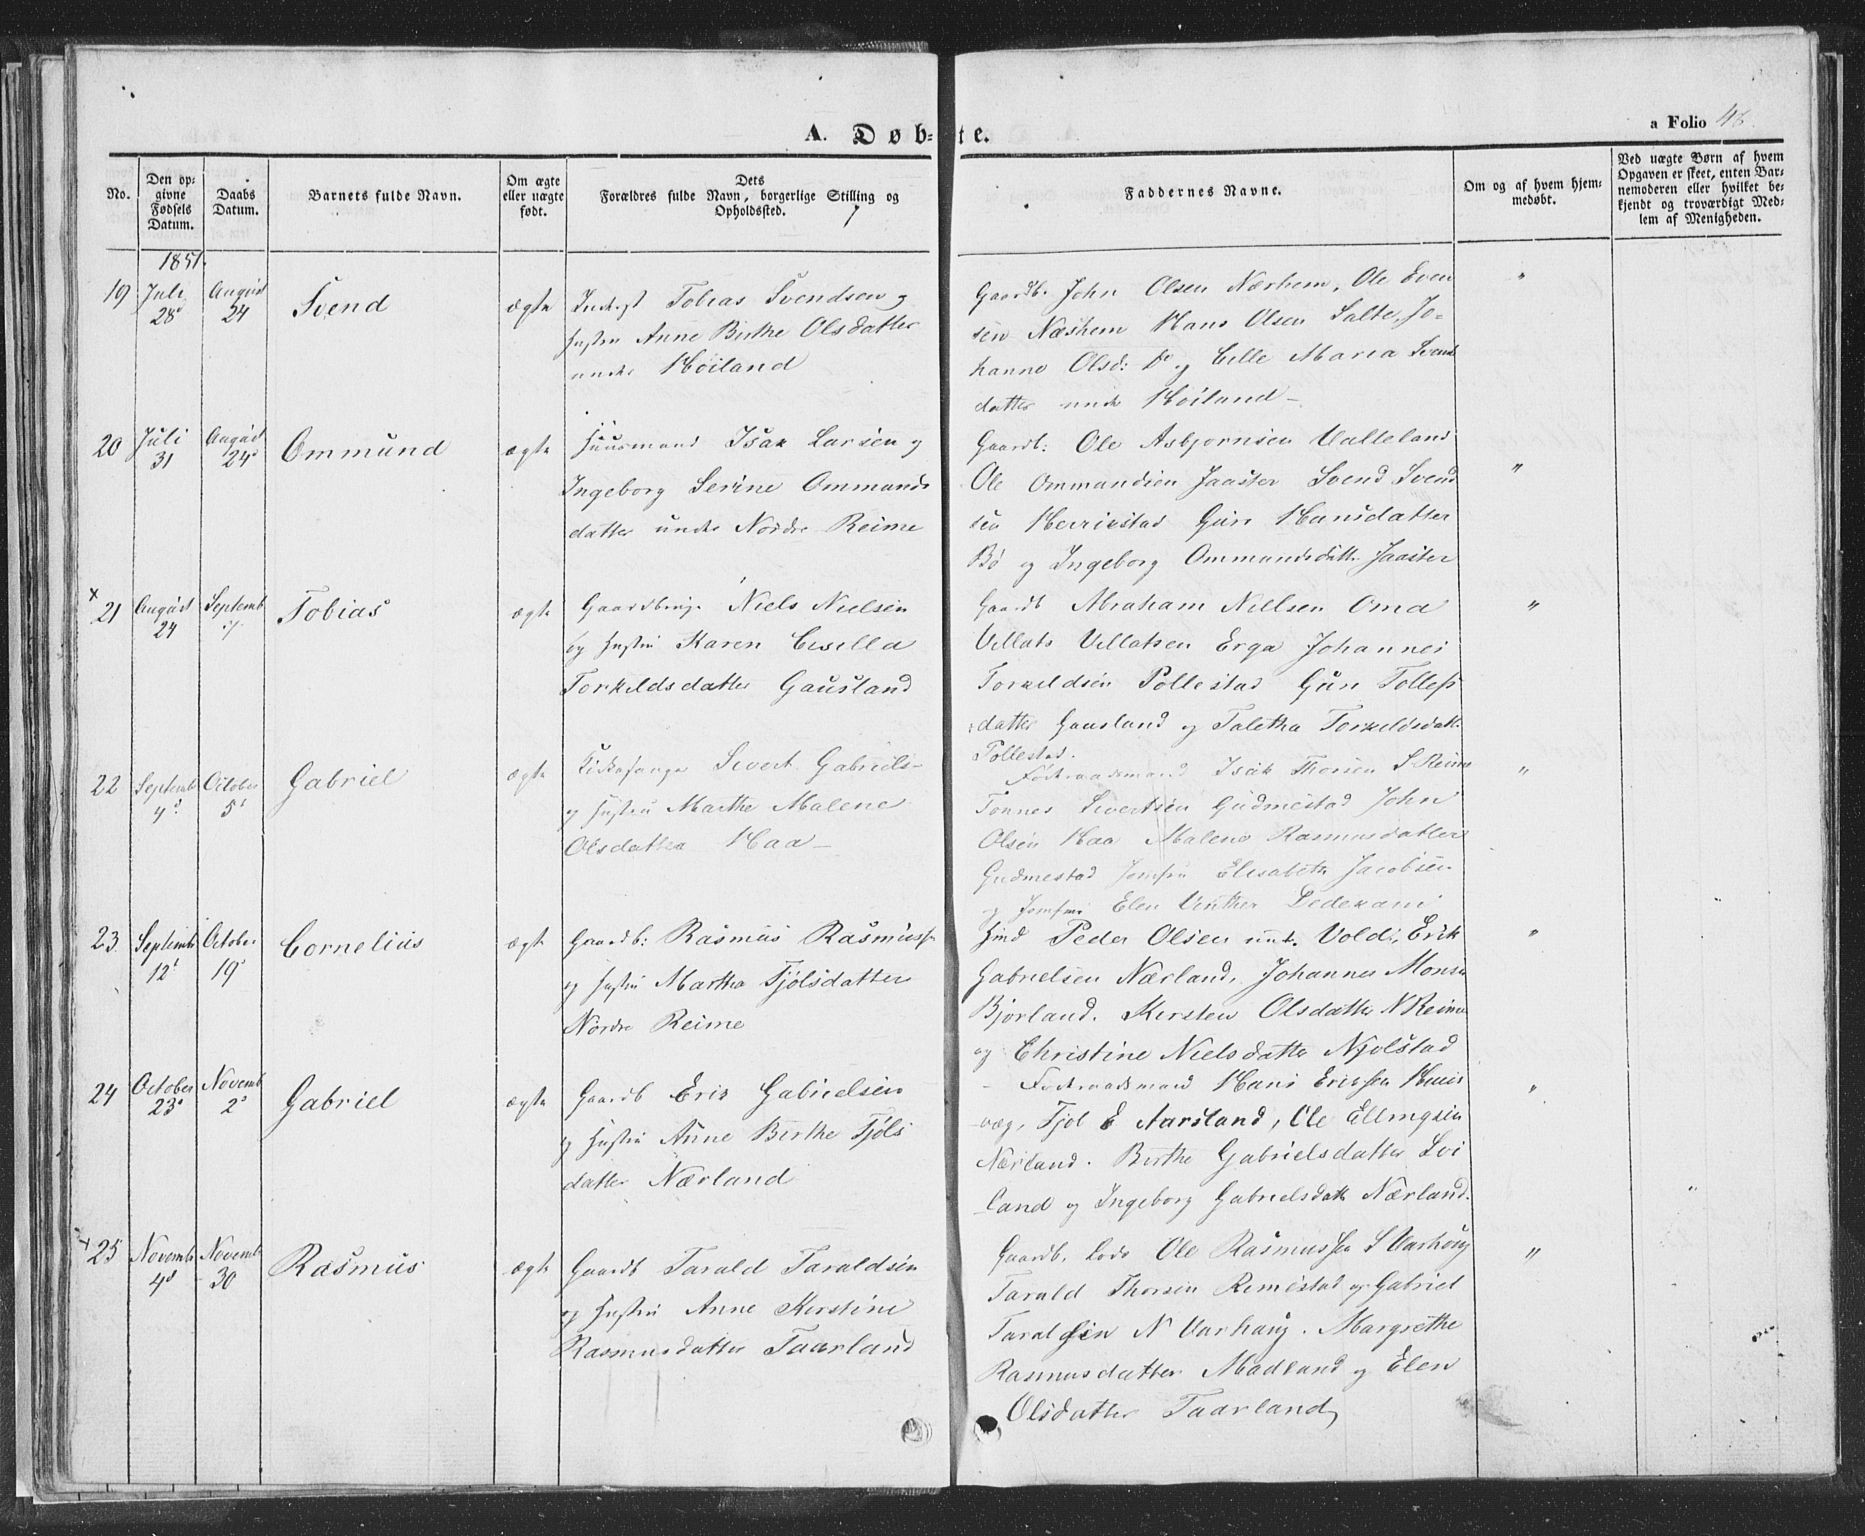 A. Døbte.
a Folio 48.
No.
Den opgivne Fødsels Datum.
Daabs Datum.
Barnets fulde Navn.
Om ægte eller uægte født.
Dets Forældres fulde Navn, borgerlige Stilling og Opholdssted.
Faddernes Navne.
Om og af hvem hjemmedøbt.
Ved uægte Børn af hvem Opgaven er skeet, enten Barnemoderen eller hvilket bekjendt og troværdigt Medlem af Menigheden.
1851.
19 Juli 28 August 24 Svend ægte
Inderst Tobias Svendsen og
Hustru Anne Birthe Olsdatter
under Höiland
Gaardb. John Olsen Nærhem, Ole Even
sen Næshem Hans Olsen Salte, Jo-
hanne Olsd: Do og Cille Maria Svends
datter unde Höiland - "
20 Juli 31 August 24 Ommund ægte
Huusmand Isak Larsen og
Ingeborg Serine Ommunds
datter under Nordre Reime
Gaardb: Ole Asbjornsen Valleland
Ole Ommundsen Jaaster Svend Svend
sen Herrikstad Guri Hansdatter
Bö og Ingeborg Ommundsdatt. Jaaster "
x 21 August 24 Septemb 7 Tobias ægte
Gaardbrug. Niels Nielsen
og Hustru Karen Cesilla
Torkeldsdatter Gausland
Gaardb Abraham Nielsen Oma
Villats Villatsen Erga Johannes
Torkeldsen Pollestad Guri Tollefs
datter Gausland og Taletha Torkeldsdatt.
Pollestad. "
22 Septemb 4 October 5 Gabriel ægte
Kirkesanger Sivert Gabriels-
og Hustru Marthe Malene
Olsdatter Haa -
Isak Thorsen S Reime
Tönnes Sivertsen Gudmestad John
Olsen Haa Malene Rasmusdatter
Gudmestad Jomfru Elisabeth Jacobsen
og Jomfru Elen Vinther Dedekam "
23 Septemb 12 October 19 Cornelius ægte
Gaardb: Rasmus Rasmuss
og Hustru Martha Tjölsdatter
Nordre Reime
Peder Olsen unt. Vold, Erik
Gabrielsen Nærland, Johannes Monsen
Bjorland. Kirsten Olsdatter N Reime
og Christine Nielsdatter Njolstad "
24 October 23 Novemb 2 Gabriel ægte
Gaardb Erik Gabrielsen
og Hustru Anne Birthe Tjöls
datter Nærland
Hans Eriksen Huus
væg, Tjöl E Aarsland, Ole Ellingsen
Nærland. Birthe Gabrielsdatter Lvi
land og Ingeborg Gabrielsdatt Nærland. "
x 25 Novemb 4 Novemb 30 Rasmus ægte
Gaardb Tarald Taraldsen
og Hustru Anne Kirstine
Rasmusdatter Taarland
Gaardb. Ole Rasmussen S Varhoug
Tarald Thorsen Rimestad og Gabriel
Taraldsen N Varhoug. Margrethe
Rasmusdatter Madland og Elen
Olsdatter Taarland "